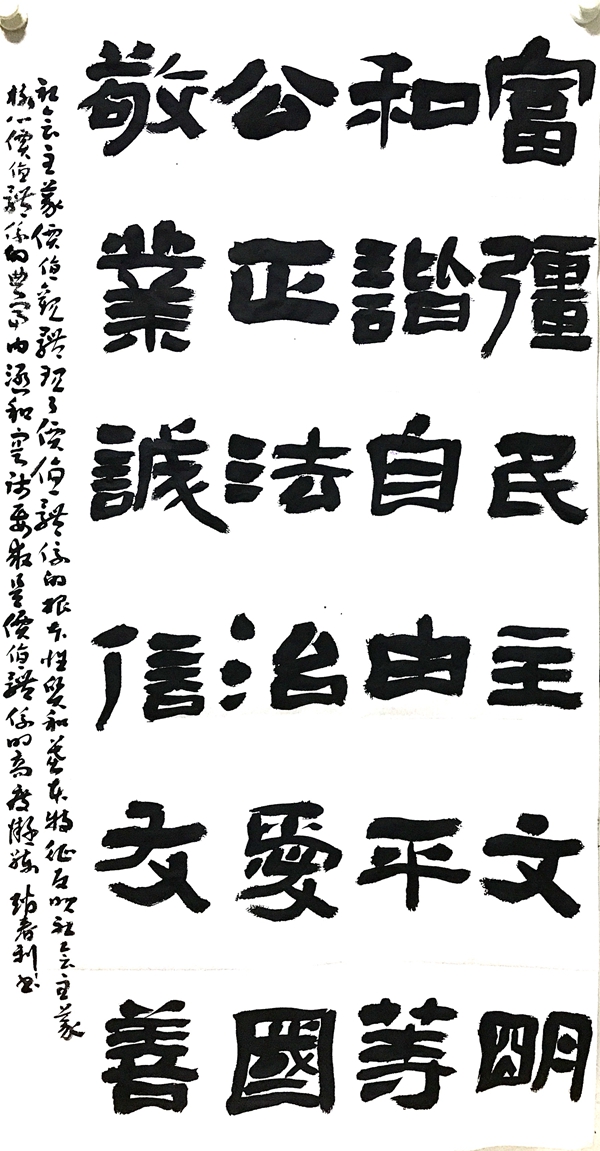 富彊民主文明
和諧自由平等
公正法治愛國
敬業誠信友善
社会主義價值觀體現了價值體係的根本性質和基本特征反映社会主義
核心價值體係的豐富内涵和實踐要求是價值體係的高度凝練 趙春利书